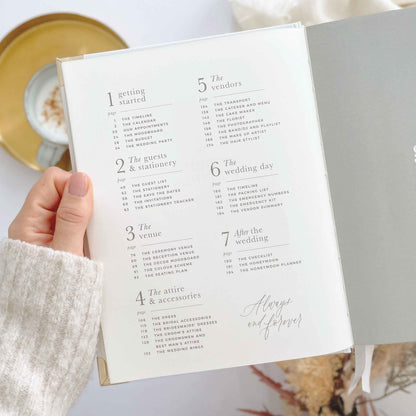 1 getting
started
page
1 THE TIMELINE
3 THE CALENDAR
20 OUR APPOINTMENTS
24 THE MOODBOARD
28 THE BUDGET
34 THE WEDDING PARTY
2 The guests
& stationery
page
40 THE GUEST LIST
52 THE STATIONERY
56 THE SAVE THE DATES
58 THE INVITATIONS
62 THE STATIONERY TRACKER
3 The
venue
page
76 THE CEREMONY VENUE
THE RECEPTION VENUE
THE DECOR MOODBOARD
THE COLOUR SCHEME
THE SEATING PLAN
4 The attire
& accessories
page
THE DRESS
THE BRIDAL ACCESSORIES
THE BRIDESMAIDS' DRESSES
THE GROOM'S ATTIRE
THE GROOMSMEN AND
BEST MAN'S ATTIRE
THE WEDDING RINGS
5 The
vendors
page
THE TRANSPORT
THE CATERER AND MENU
THE CAKE MAKER
THE FLORIST
THE PHOTOGRAPHER
THE BAND/DJ AND PLAYLIST
THE MAKE UP ARTIST
THE HAIR STYLIST
6 The
wedding day
page
THE TIMELINE
THE PACKING LIST
THE EMERGENCY NUMBERS
THE EMERGENCY KIT
THE VENDOR SUMMARY
7 After the
wedding
page
THE CHECKLIST
THE HONEYMOON
THE HONEYMOON PLANNER
Always
and forever